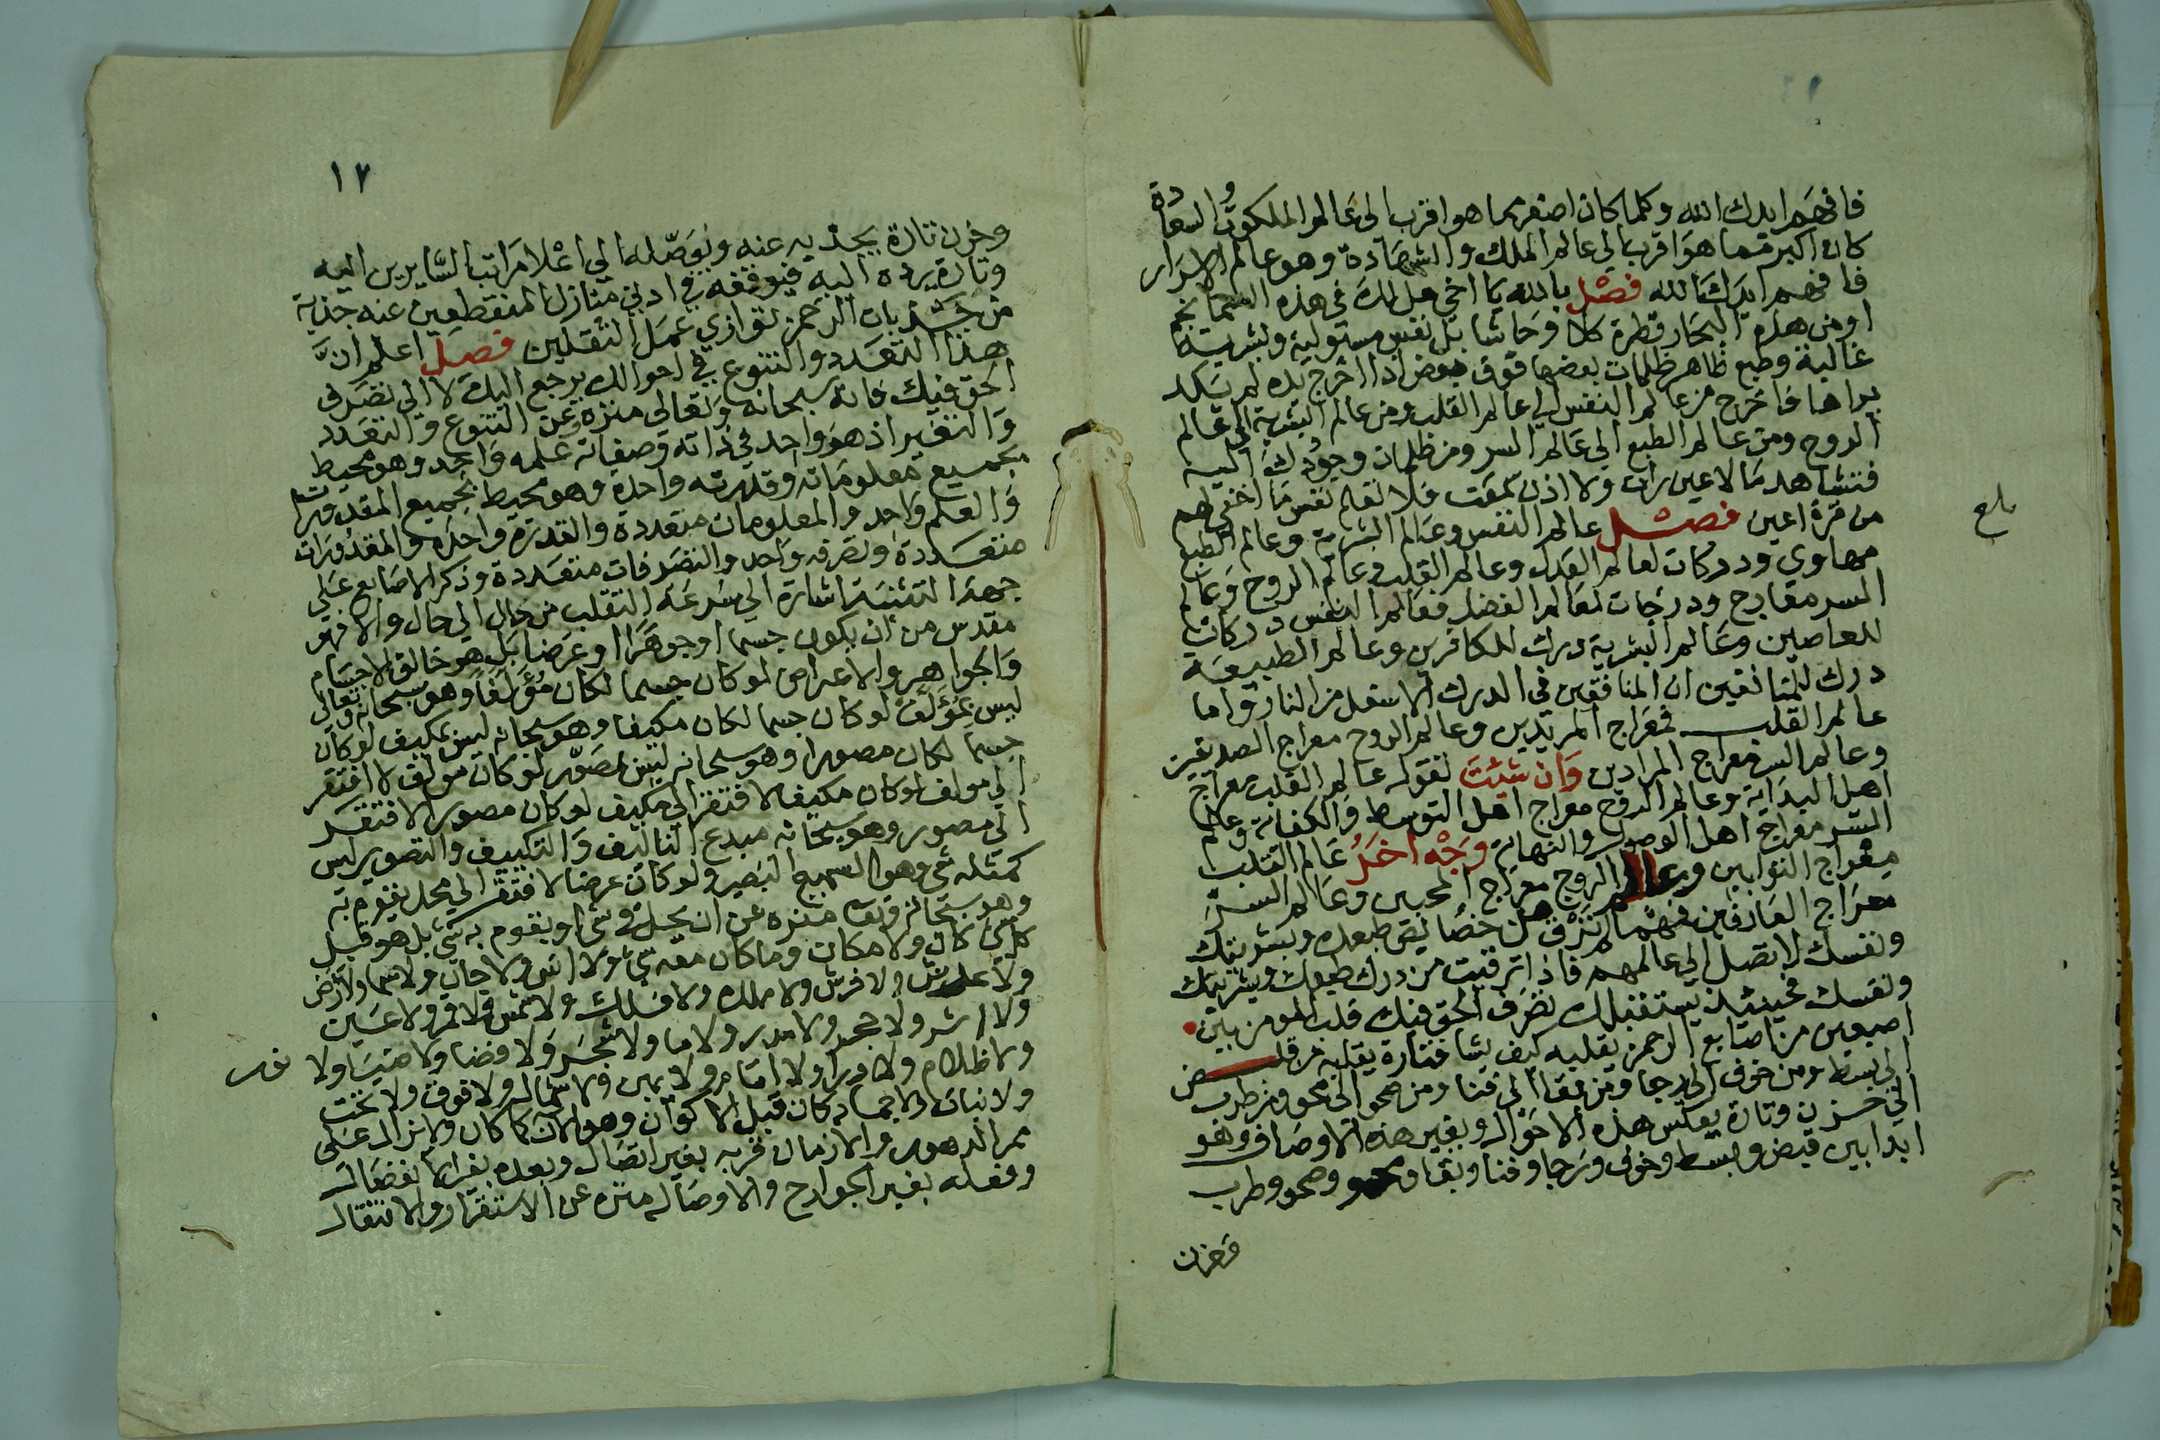 فافهم ايدك الله وكلما كان اصغر مما هو اقرب الى عالم الملكوت والسعادة
كان اكبر قسما هو اقرب الى عالم الملك والشهادة وهو عالم الابرار
فافهم ايدك الله فصل بالله يا اخي هل لك في هذه السما نجم
او من هذه البحار قطرة كلا وحاشا بل نفس مستولية وبشرية
غالبة وطبع ظاهر ظلمات بعضها فوق بعض اذا اخرج يده لم يكد
يراها فاخرج من عالم النفس الى عالم القلب ومن عالم البشرية الى عالم
الروح ومن عالم الطبع الى عالم السر ومن ظلمات وجودك اليه
فتشاهد ما لا عين رات ولا اذن سمعت فلا تعلم نفس ما اخفي لهم
من قرة اعين فصل عالم النفس وعالم البشرية وعالم الطبع
مهاوي ودركات لعالم العدل وعالم القلب وعالم الروح وعالم
السر معارج ودرجات لعالم الفضل فعالم النفس دركات
للعاصين وعالم البشرية درك للكافرين وعالم الطبيعة
درك للمنافقين ان المنافقين في الدرك الاسفل من النار واما
عالم القلب فمعراج المريدين وعالم الروح معراج الصديقين
وعالم السر معراج المرادين وان شئت لقوله عالم القلب معراج
اهل البداية وعالم الروح معراج اهل التوسط والكفاية وعالم
السر معراج اهل الوصول والنهاية وجه اخر عالم القلب
معراج التوابين وعالم الروح معراج المحبين وعالم السر
معراج العارفين فمهما لم تترق عن خصائص طبعك وبشريتك
ونفسك لا تصل الى عالمهم فاذا ترقيت من درك طبعك وبشريتك
ونفسك فحينئذ يستقبلك تصرف الحق فيك قلب المومن بين
اصبعين من اصابع الرحمن يقلبه كيف يشا فتارة يقلبه من قبض
الى بسط ومن خوف الى رجا ومن بقا الى فنا ومن صحو الى محو ومن طرب
الى حزن وتارة بعكس هذه الاحوال وبغير هذه الاوصاف وهو
ابدا بين قبض وبسط وخوف ورجا وفنا وبقا ومحو وصحو وطرب
وحزن
بلغ
١٢
وحزن تارة يجذبه عنه ويوصله الى اعلا مراتب السايرين اليه
وتارة يرده اليه فيوقفه في ادنى منازل المنقطعين عنه جذبة
من جذبات الرحمن توازي عمل الثقلين فصل اعلم ان
هذا التعدد والتنوع في احوالك يرجع اليك لا الى تصرف
الحق فيك فانه سبحانه وتعالى منزه عن التنوع والتعدد
والتغير اذ هو واحد في ذاته وصفاته علمه واحد وهو محيط
بجميع معلوماته وقدرته واحدة وهو محيط بجميع المقدورات
والعلم واحد والمعلومات متعددة والقدرة واحدة والمقدورات
متعددة وتصرفه واحد والتصرفات متعددة وذكر الاصابع على
جهة التثنية اشارة الى سرعة التقلب من حال الى حال والا فهو
مقدس من ان يكون جسما او جوهرا او عرضا بل هو خالق الاجسام
والجواهر والاعراض لو كان جسما لكان مؤلفا وهو سبحانه وتعالى
ليس بمؤلف لو كان جسما لكان مكيفا وهو سبحانه ليس بمكيف لو كان
جسما لكان مصورا وهو سبحانه ليس بمصور لو كان مولف لا افتقر
الى مولف لو كان مكيفا لافتقر الى مكيف لو كان مصورا لافتقر
الى مصور وهو سبحانه مبدع التاليف والتكييف والتصوير ليس
كمثله شي وهو السميع البصير ولو كان عرضا لافتقر الى محل يقوم به
وهو سبحانه وتعالى منزه عن ان يحل في شي او يقوم به شي بل هو قبل
كل شي كان ولا مكان وما كان معه شي ولا انس ولا جان ولا سما ولا ارض
ولا عرش ولا فرش ولا ملك ولا فلك ولا شمس ولا قمر ولا عين
ولا اثر ولا حجر ولا مدر ولا ما ولا شجر ولا فضا ولا ضيا ولا
ولا ظلام ولا ورا ولا امام ولا يمين ولا شمال ولا فوق ولا تحت
ولا نبات ولا جماد كان قبل الاكوان وهو الآن كما كان ولا يزال على
ممر الدهور والازمان قربه بغير اتصال وبعده بغير انفصال
وفعله بغير الجوارح والاوصال منزه عن الاستقرار والانتقال